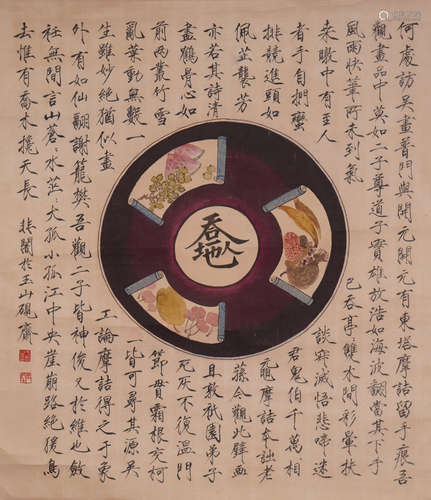 何處訪吳畫普門與開元開元有東塔摩詰留手痕吾
觀畫品中莫如二子尊道子實雄放浩如海波翻當其下手
風雨快筆所未到氣已吞亭亭雙林間彩暈扶
桑暾中有至人談寂滅悟者悲啼迷
者手自捫蠻君鬼伯千萬相
排競進頭如黿摩詰本詩老
佩芷襲芳蓀今觀此壁畫
亦若其詩清且敦祇園弟子
盡鶴骨心如死灰不復溫門
前兩叢竹雪節貫霜根交柯
亂葉動無數一一皆可尋其源吳
生雖妙絕猶似畫工論摩詰得之於象
外有如仙翮謝籠樊吾觀二子皆神俊又於維也斂
衽無間言山蒼〻水茫〻大孤小孤江中央崖崩路絕猿鳥
去惟有喬木攙天長 於玉山硯齋